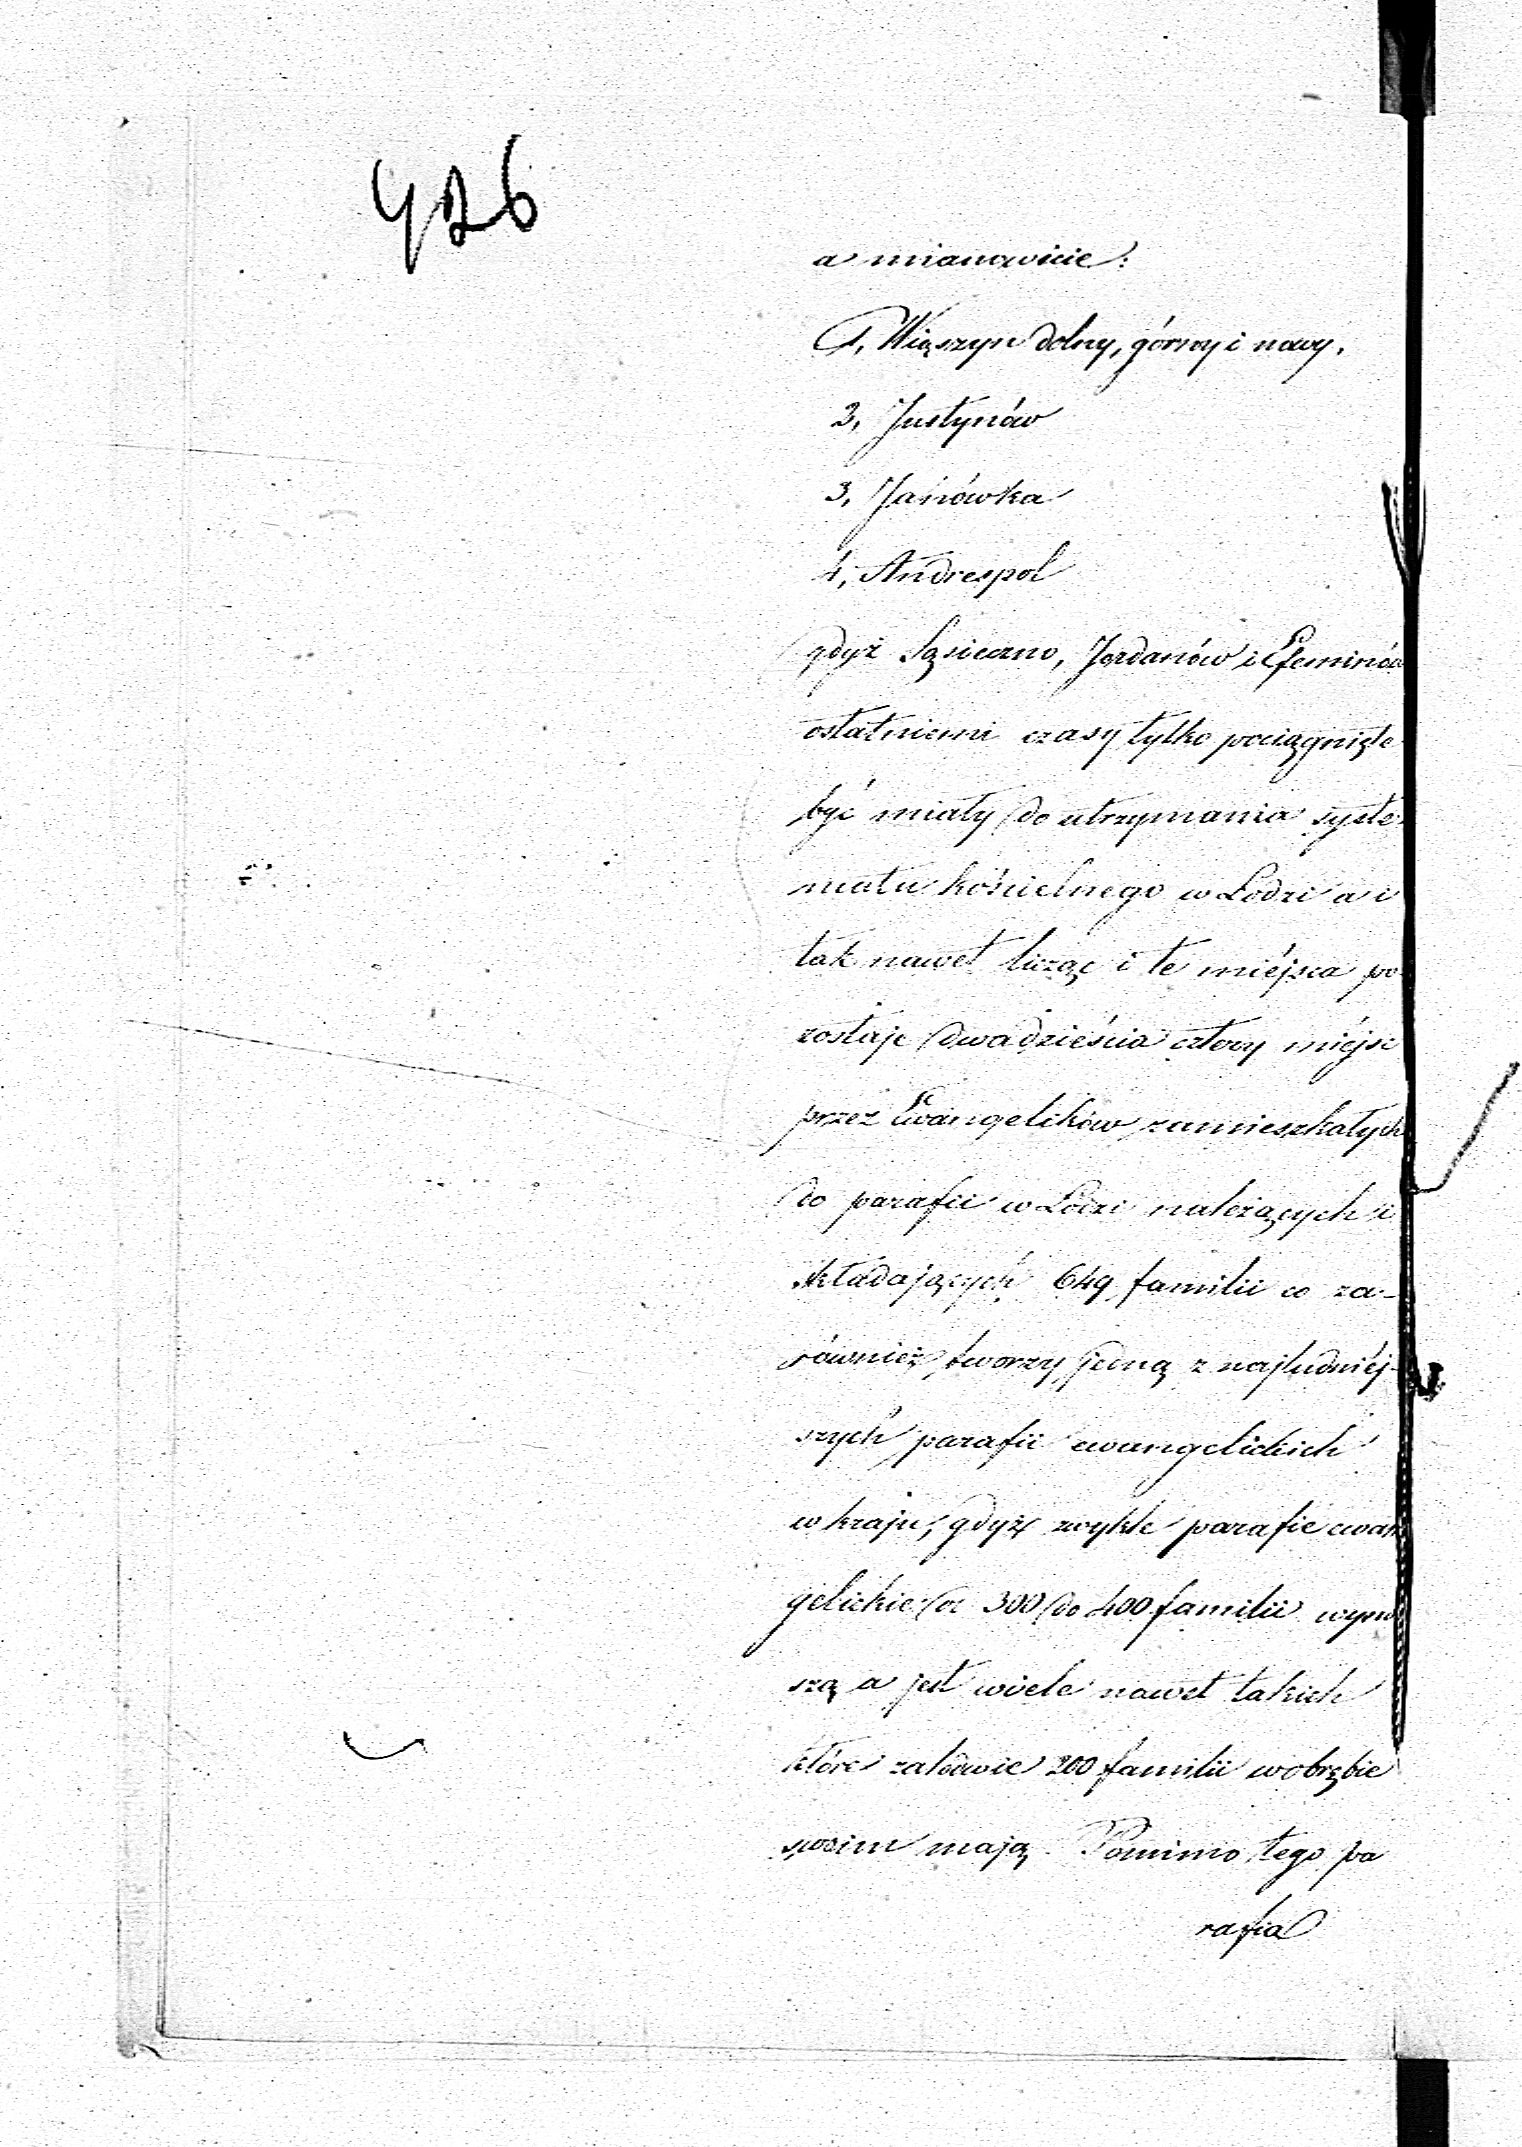 426
a mianowicie:
1, Wiączyn dolny, górny i nowy,
2, Justynów
3, Janówka
4, Andrespol
gdyż Sąsieczno, Jordanów i Efeminów
ostatniemi czasy tylko pociągnięte
być miały do utrzymania syste-
matu kościelnego w Łodzi a i
tak nawet licząc i te miéjsca po
zostaje dwadzieścia cztery miéjsc
przez Ewangelików zamieszkałych
do parafii w Łodzi należących i
składających 649 familii co za-
również tworzy jedną z najludniéj-
szych parafii ewangelickich
w kraju, gdyż zwykle parafie ewan
gelickie od 300 do 400 familii wyno
szą a jest wiele nawet takich
które zaledwie 200 familii w obrębie
swoim mają. Pomimo tego pa
rafia